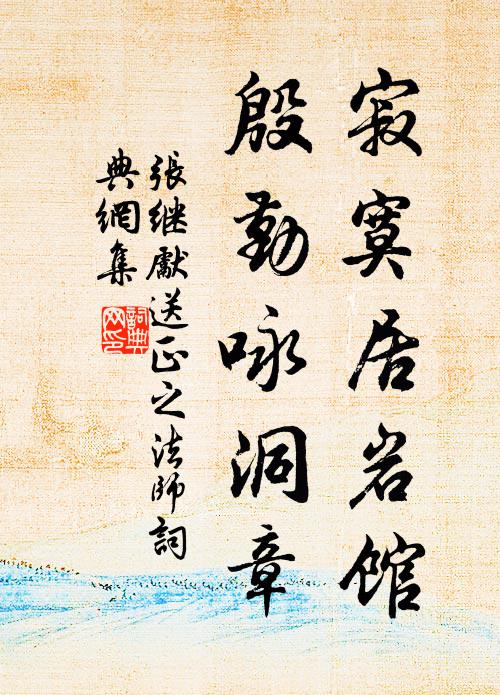 寂寞居岩馆
殷勤咏洞章
張继獻送正之法師詞
典網集
詞典网印